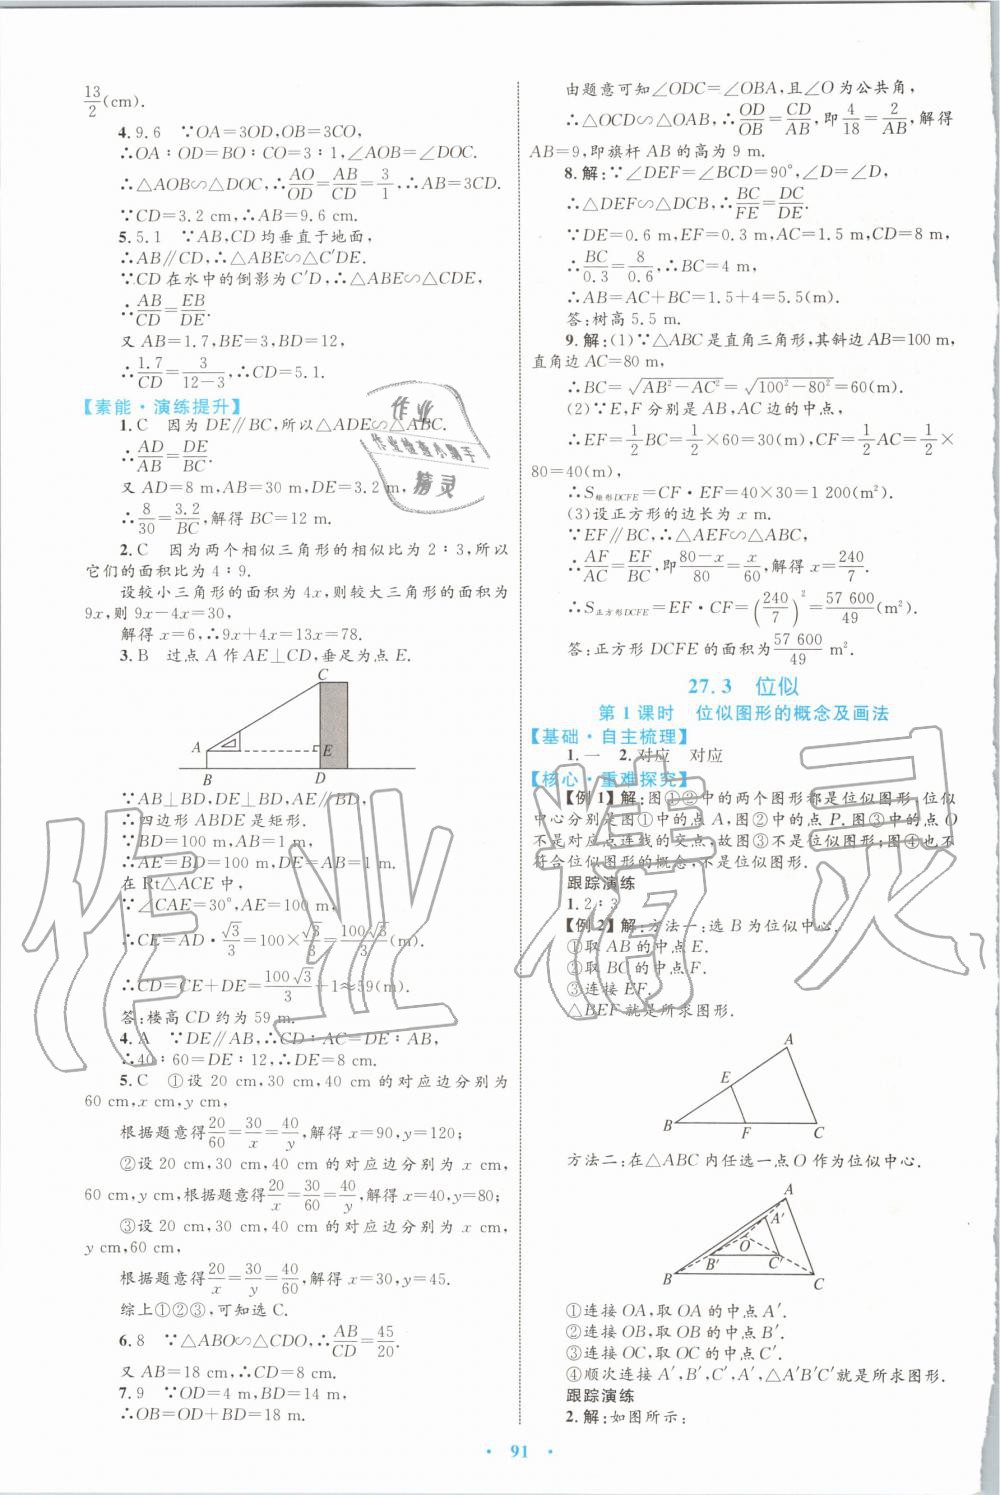 13/2(cm).
4. 9.6 ∵OA=3OD,OB=3CO,
∴OA∶OD=BO∶CO=3∶1,∠AOB=∠DOC.
∴△AOB∽△DOC,∴AO/OD=AB/CD=3/1,∴AB=3CD.
∵CD=3.2 cm,∴AB=9.6 cm.
5. 5.1 ∵AB,CD均垂直于地面,
∴AB∥CD,∴△ABE∽△C′DE.
∵CD在水中的倒影为C′D,∴△ABE∽△CDE,
∴AB/CD=EB/DE.
又AB=1.7,BE=3,BD=12,
∴1.7/CD=3/(12-3),∴CD=5.1.
【素能·演练提升】
1. C 因为DE∥BC,所以△ADE∽△ABC.
∴AD/AB=DE/BC.
又AD=8 m,AB=30 m,DE=3.2 m,
∴8/30=3.2/BC,解得BC=12 m.
2. C 因为两个相似三角形的相似比为2∶3,所以
它们的面积比为4∶9.
设较小三角形的面积为4x,则较大三角形的面积为
9x,则9x-4x=30,
解得x=6,∴9x+4x=13x=78.
3. B 过点A作AE⊥CD,垂足为点E.
C
A
E
B
D
∵AB⊥BD,DE⊥BD,AE⊥CD,
∴四边形ABDE是矩形.
∵BD=100 m,AB=1 m,
∴AE=BD=100 m,DE=AB=1 m.
在Rt△ACE中,
∵∠CAE=30°,AE=100 m,
∴CE=AD·√3/3=100×√3/3=100√3/3(m).
∴CD=CE+DE=100√3/3+1≈59(m).
答:楼高CD约为59 m.
4. A ∵DE∥AB,∴CD∶AC=DE∶AB,
∴40∶60=DE∶12,∴DE=8 cm.
5. C ①设20 cm,30 cm,40 cm的对应边分别为
60 cm,x cm,y cm,
根据题意得20/60=30/x=40/y,解得x=90,y=120;
②设20 cm,30 cm,40 cm的对应边分别为x cm,
60 cm,y cm,根据题意得20/x=30/60=40/y,解得x=40,y=80;
③设20 cm,30 cm,40 cm的对应边分别为x cm,
y cm,60 cm,
根据题意得20/x=30/y=40/60,解得x=30,y=45.
综上①②③,可知选C.
6. 8 ∵△ABO∽△CDO,∴AB/CD=45/20.
又AB=18 cm,∴CD=8 cm.
7. 9 ∵OD=4 m,BD=14 m,
∴OB=OD+BD=18 m.
由题意可知∠ODC=∠OBA,且∠O为公共角,
∴△OCD∽△OAB,∴OD/OB=CD/AB,即4/18=2/AB,解得
AB=9,即旗杆AB的高为9 m.
8. 解:∵∠DEF=∠BCD=90°,∠D=∠D,
∴△DEF∽△DCB,∴BC/FE=DC/DE.
∵DE=0.6 m,EF=0.3 m,AC=1.5 m,CD=8 m,
∴BC/0.3=8/0.6,∴BC=4 m,
∴AB=AC+BC=1.5+4=5.5(m).
答:树高5.5 m.
9. 解:(1)∵△ABC是直角三角形,其斜边AB=100 m,
直角边AC=80 m,
∴BC=√(AB²-AC²)=√(100²-80²)=60(m).
(2)∵E,F分别是AB,AC边的中点,
∴EF=1/2BC=1/2×60=30(m),CF=1/2AC=1/2×
80=40(m).
∴S矩形DCFE=CF·EF=40×30=1 200(m²).
(3)设正方形的边长为x m.
∵EF∥BC,∴△AEF∽△ABC,
∴AF/AC=EF/BC,即(80-x)/80=x/60,解得x=240/7.
∴S正方形DCFE=EF·CF=(240/7)²=57 600/49(m²).
答:正方形DCFE的面积为57 600/49 m².
27.3 位似
第1课时 位似图形的概念及画法
【基础·自主梳理】
1. 一 2. 对应 对应
【核心·重难探究】
【例1】解:图①②中的两个图形都是位似图形,位似
中心分别是图①中的点A,图②中的点P.图③中的点O
不是对应点连线的交点,故图③不是位似图形;图④也不
符合位似图形的概念,不是位似图形.
跟踪演练
1. 2∶3
【例2】解:方法一:选B为位似中心.
①取AB的中点E.
②取BC的中点F.
③连接EF.
△BEF就是所求图形.
A
E
B
F
C
方法二:在△ABC内任选一点O作为位似中心.
A
A′
O
B′
C′
B
C
①连接OA,取OA的中点A′.
②连接OB,取OB的中点B′.
③连接OC,取OC的中点C′.
④顺次连接A′,B′,C′,A′,△A′B′C′就是所求图形.
跟踪演练
2. 解:如图所示:
· 91 ·
作业
作业检查小帮手
精灵
作业精灵